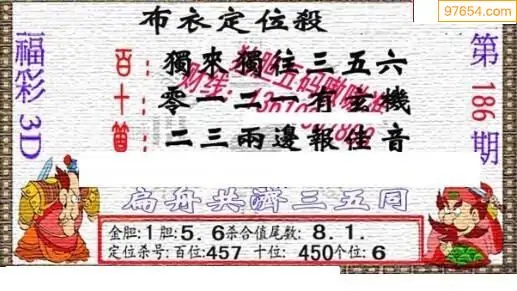 97654.com
布衣定位殺
福彩3D
第186期
百：獨來獨往三五六
十：零一二一有玄機
個：二三兩邊報佳音
扁舟共濟三五同
金胆：1胆：5.6杀合值尾数：8.1.
定位杀号：百位：457 十位：450个位：6